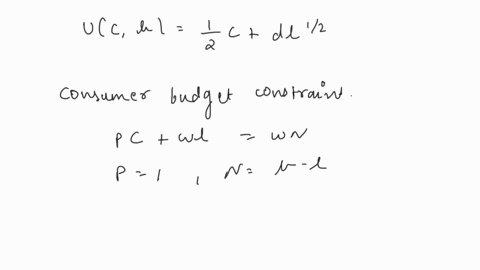 U(C, h) = 1/2 C + dl^1/2
Consumer budget constraint.
PC + wl = wN
P = 1 , N = h - l